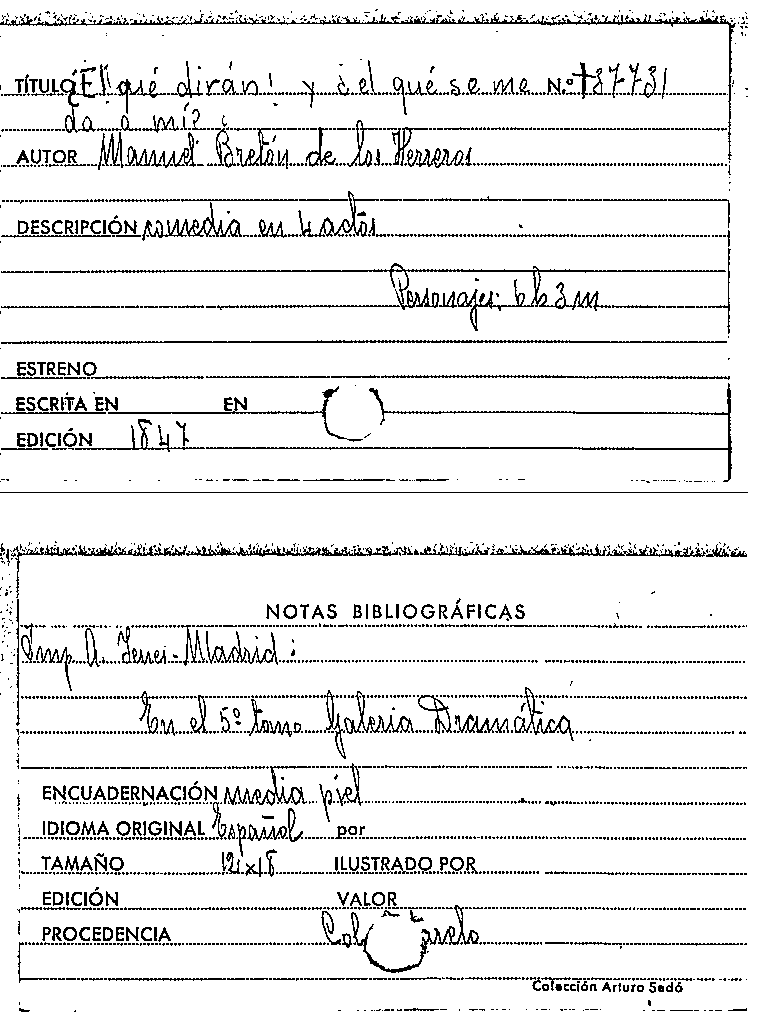 TÍTULO ¿El qué dirán! y ¿el qué se me N.º 87731
da a mí?
AUTOR Manuel Bretón de los Herreros
DESCRIPCIÓN comedia en 4 actos
Personajes: 6 h 3 m
ESTRENO
ESCRITA EN EN
EDICIÓN 1847
NOTAS BIBLIOGRÁFICAS
Imp A. Yenes - Madrid:
En el 5º tomo Galeria Dramática
ENCUADERNACIÓN media piel
IDIOMA ORIGINAL Español por
TAMAÑO 12 x 18 ILUSTRADO POR
EDICIÓN VALOR
PROCEDENCIA
Colección Arturo Sedó